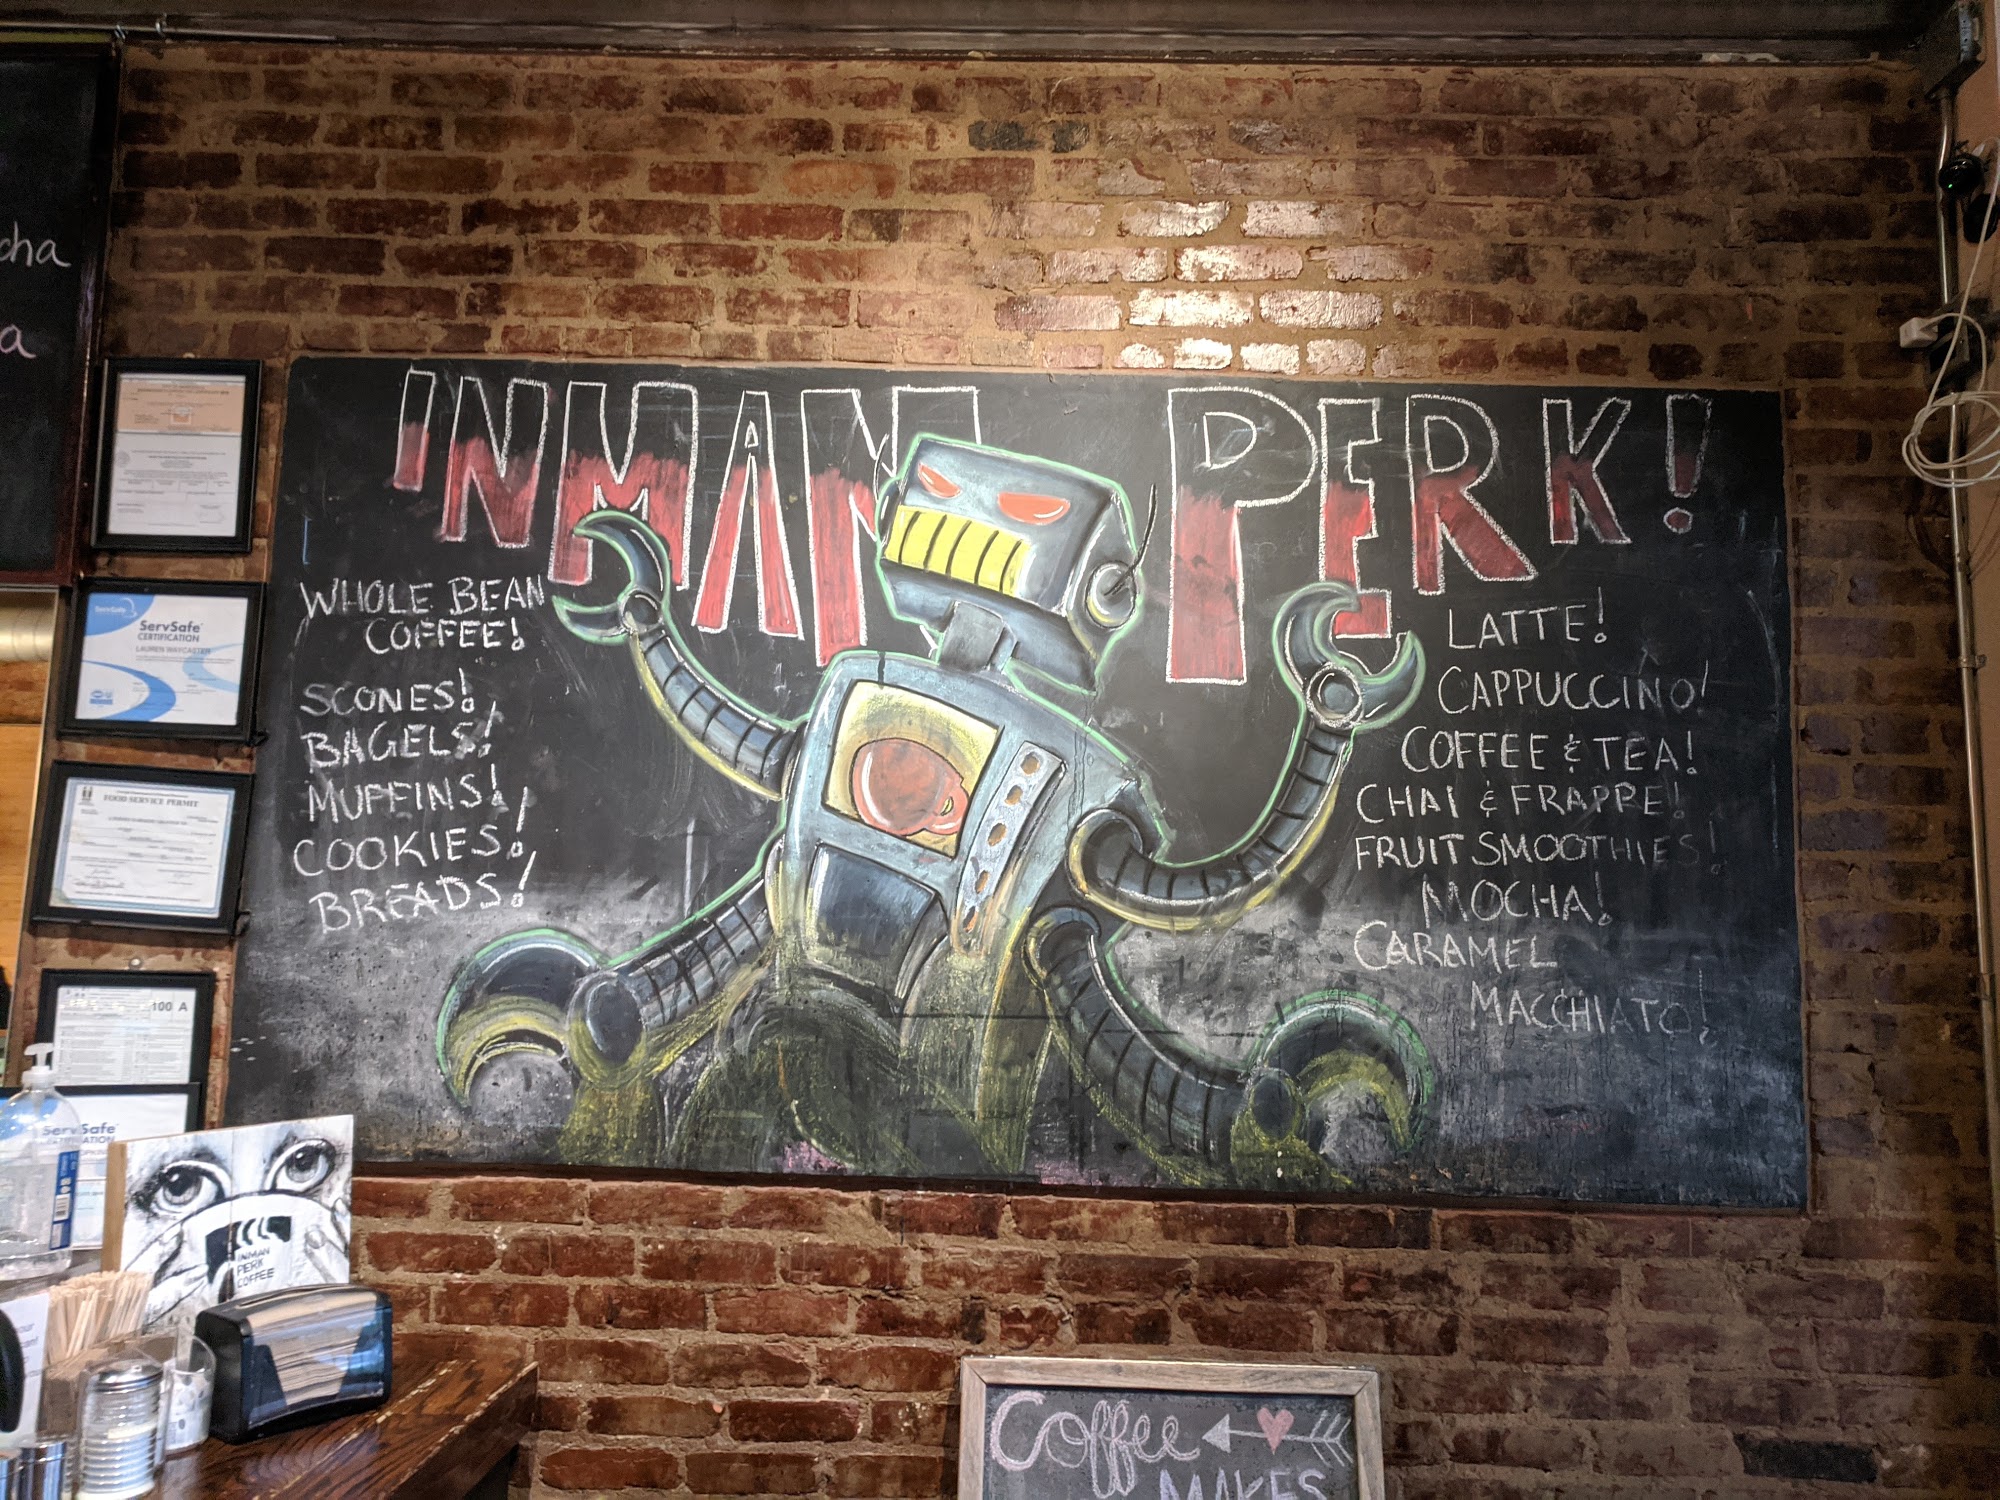 cha
a
INMAN PERK!
WHOLE BEAN
COFFEE!
SCONES!
BAGELS!
MUFFINS!
COOKIES!
BREADS!
LATTE!
CAPPUCCINO!
COFFEE & TEA!
CHAI & FRAPPE!
FRUIT SMOOTHIES!
MOCHA!
CARAMEL
MACCHIATO!
ServSafe
ServSafe
CERTIFICATION
LAUREN WAYCASTER
FOOD SERVICE PERMIT
100 A
ServSafe
CERTIFICATION
INMAN
PERK
COFFEE
Coffee
MAKES